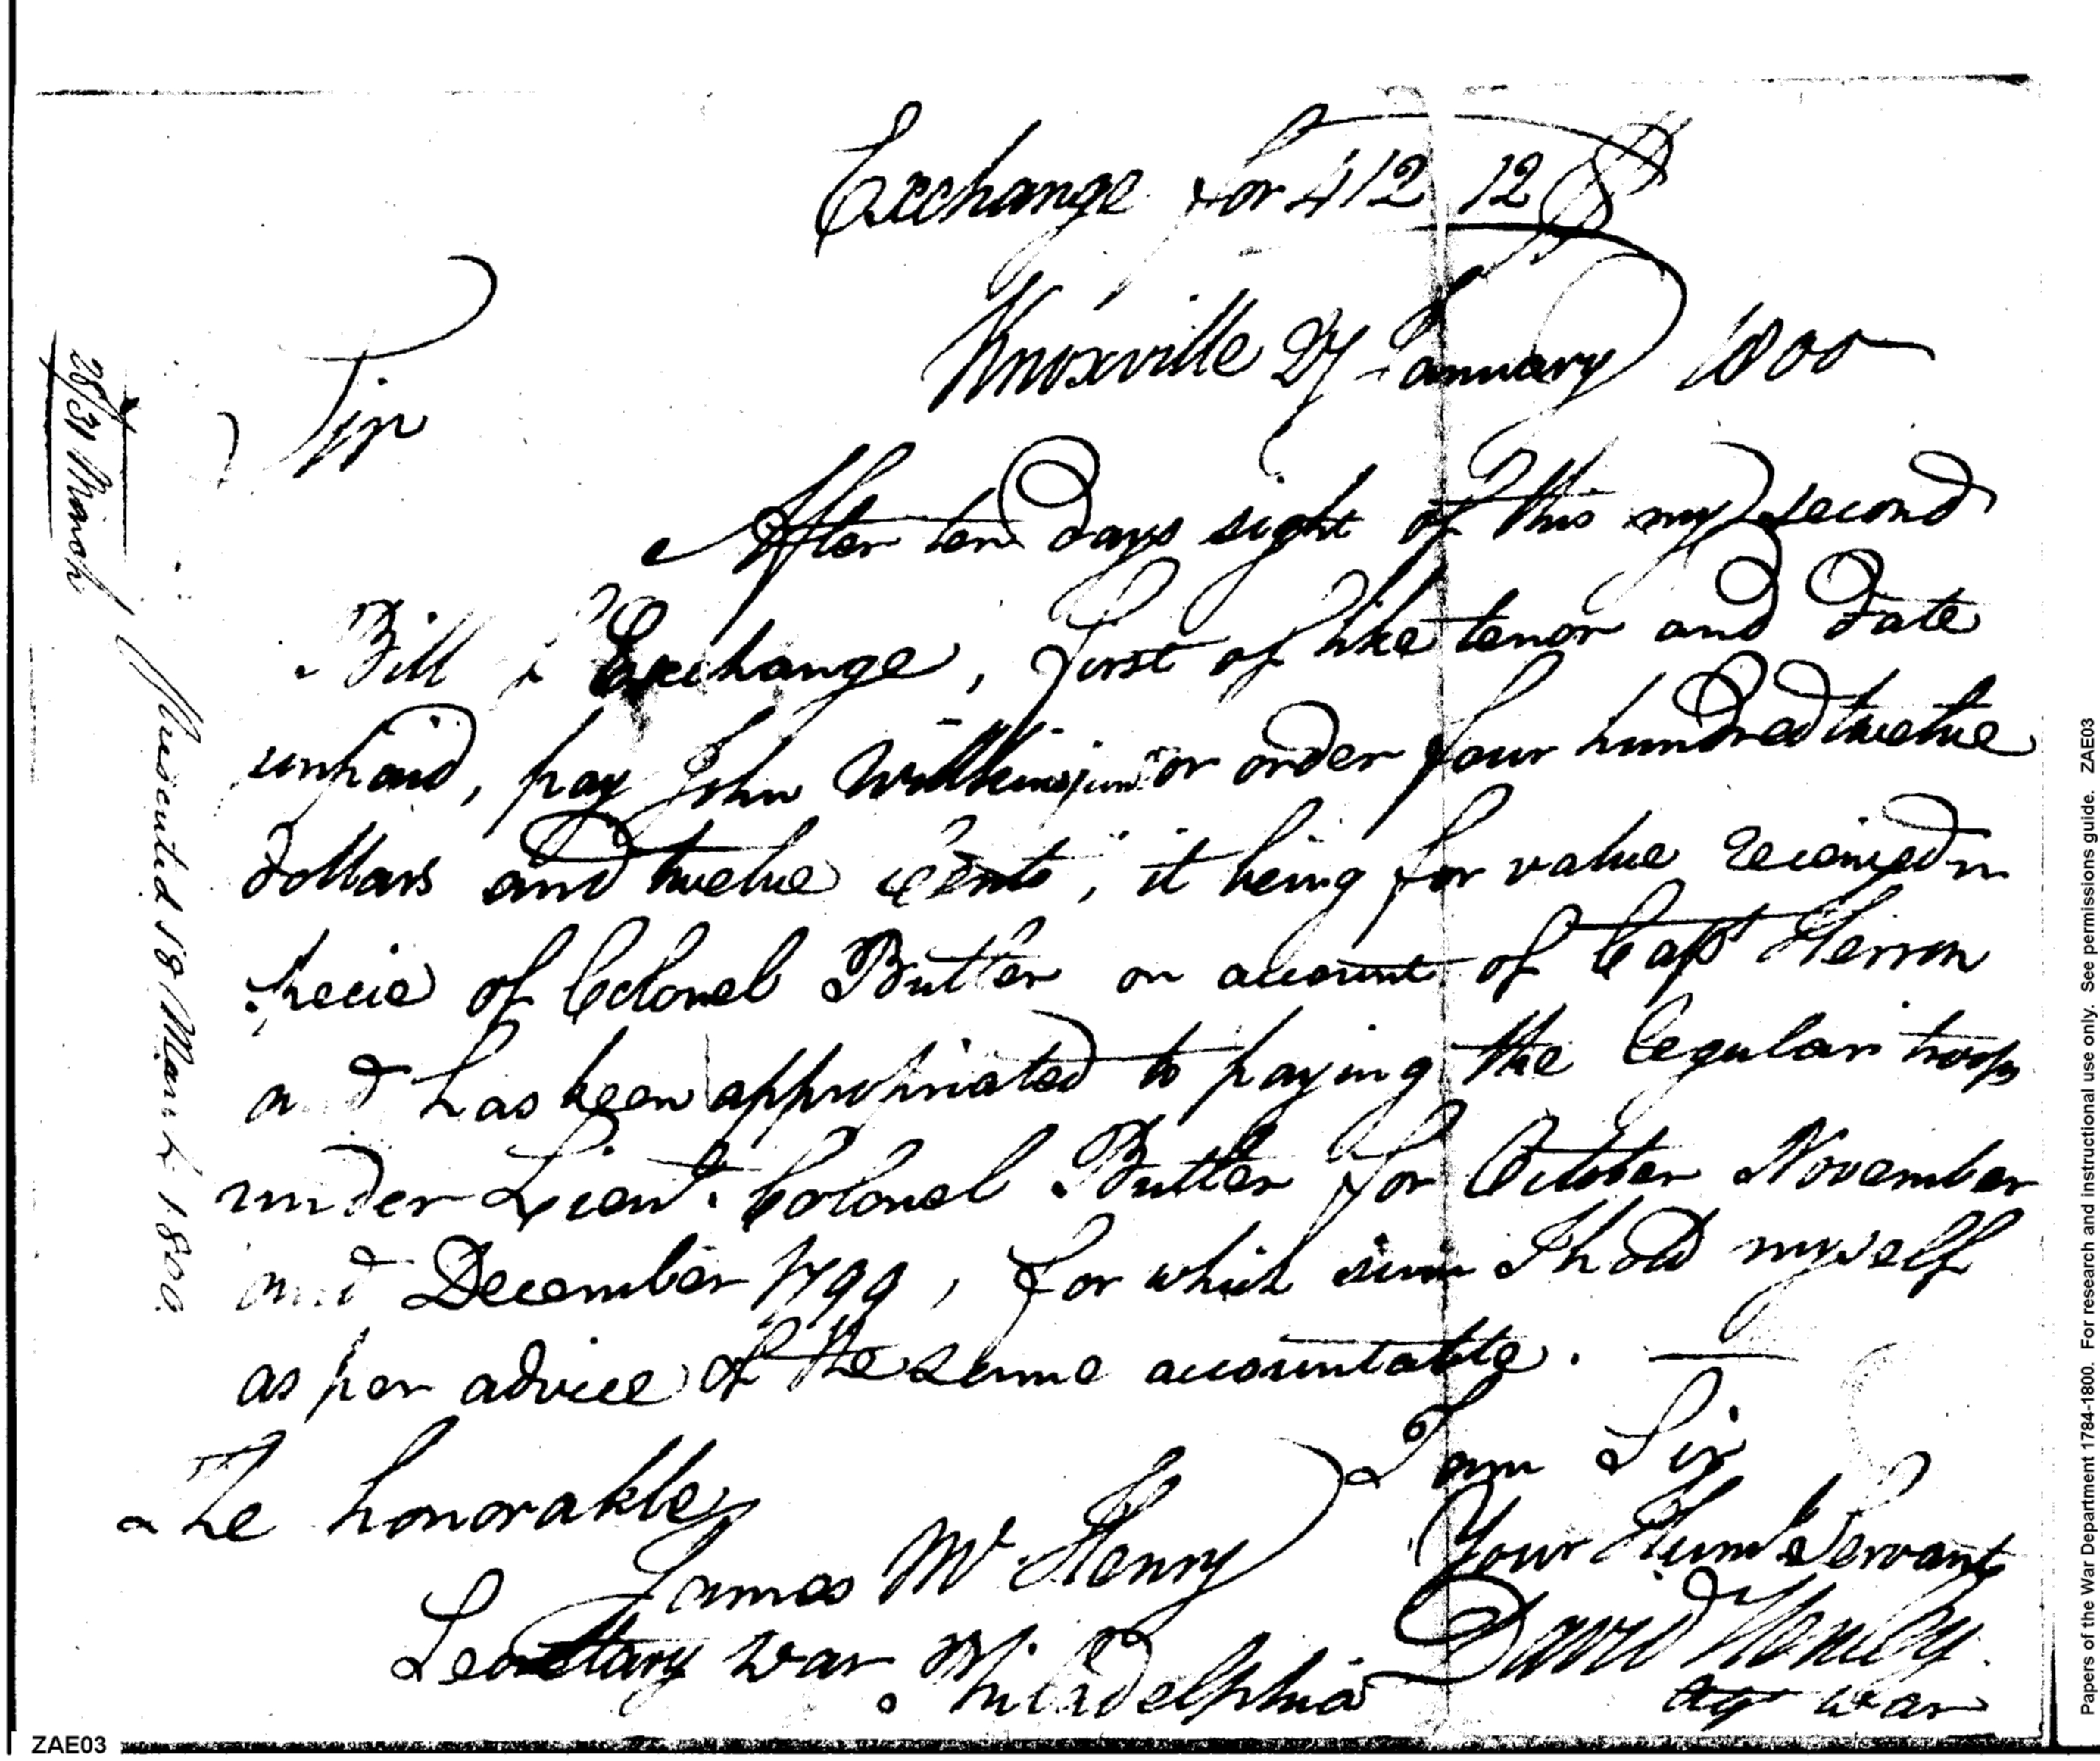 Exchange for 412 12
Knoxville 27 January 1800
Sir
After ten days sight of this my second
Bill of Exchange, first of like tenor and date
unpaid, pay John Wilkins junr or order four hundred twelve
dollars and twelve Cents, it being for value received in
specie of Colonel Butler on account of Capt Herron
and has been appropriated to paying the regular troops
under Lieut. Colonel Butler for October November
and December 1799, for which sum I hold myself
as per advice of the same accountable.
I am Sir
Your Humb Servant
David Henley
agt War
The honorable
James McHenry
Secretary War
Philadelphia
Presented 18 March 1800
28/31 March
ZAE03
Papers of the War Department 1784-1800. For research and instructional use only. See permissions guide. ZAE03